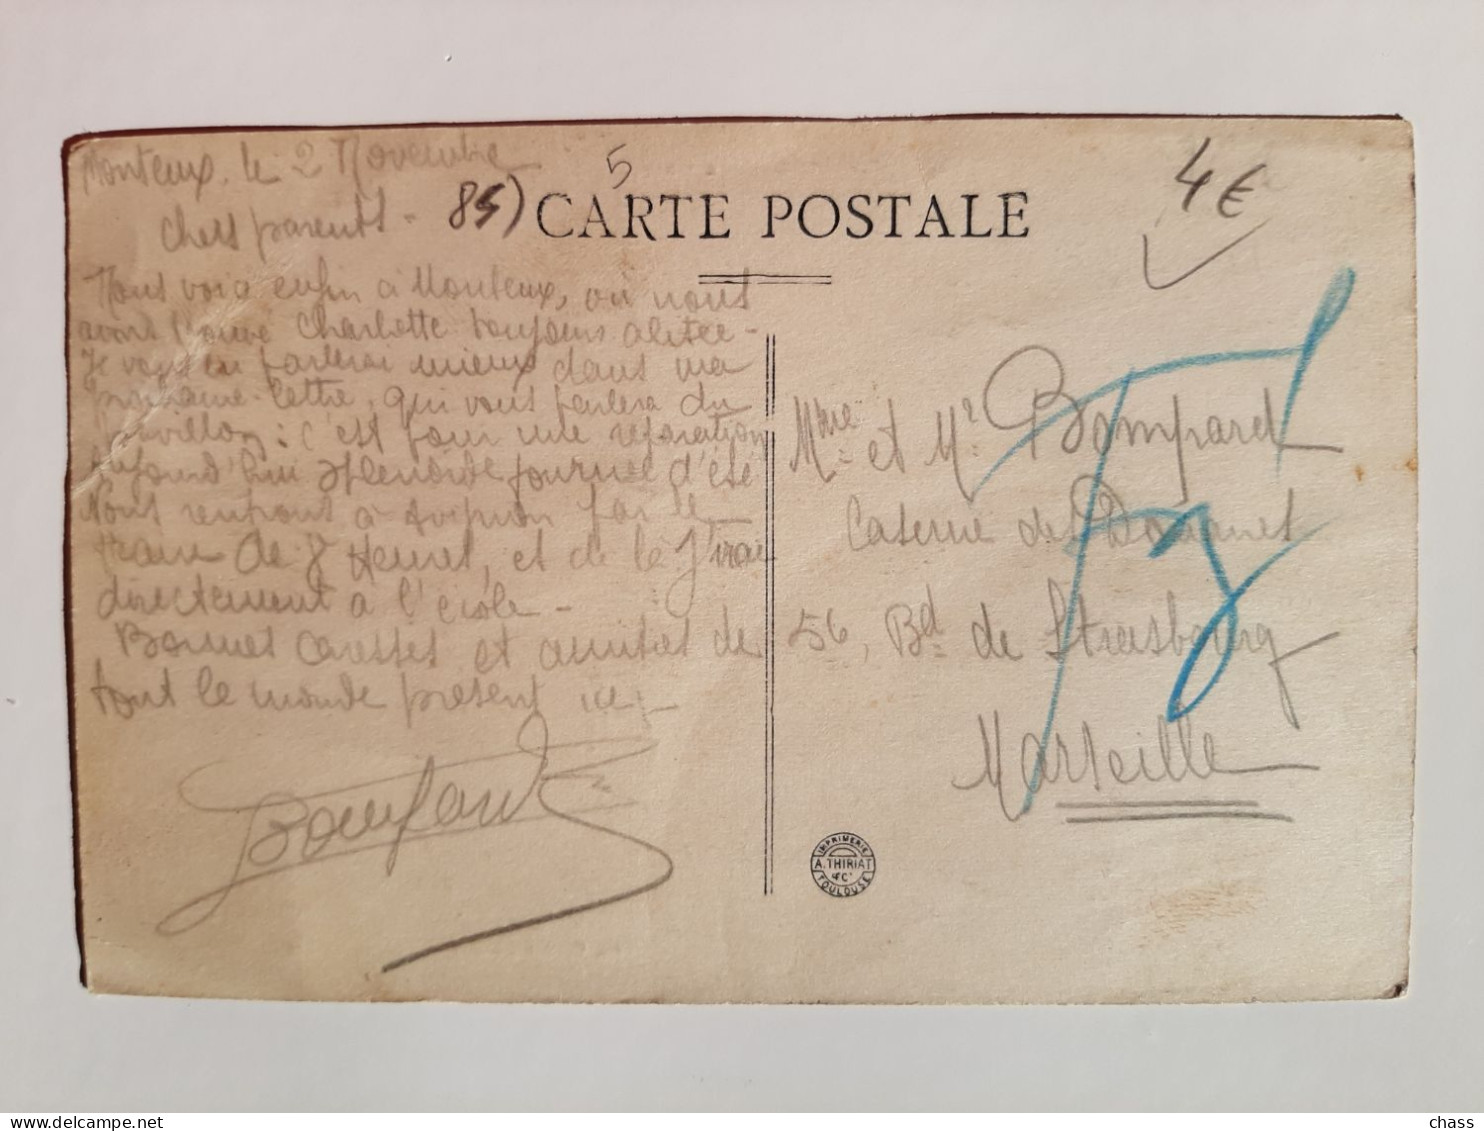 Monteux, le 2 Novembre
Chers parents -
Nous voici enfin à Monteux, où nous
avons trouvé Charlotte toujours alitée -
Je vous en parlerai mieux dans ma
prochaine lettre, qui vous parlera du
: c'est pour une réparation
Aujourd'hui splendide journée d'été
Nous rentrons à Avignon par le
train de 7 Heures, et de là j'irai
directement à l'école -
Bonnes caresses et amitiés de
tout le monde présent ici -
Bompard
85)
5
CARTE POSTALE
4€
Mme et Mr Bompard
Caserne des Douanes
56, Bd de Strasbourg
Marseille
IMPRIMERIE
A. THIRIAT
& Cie
TOULOUSE
chass
www.delcampe.net